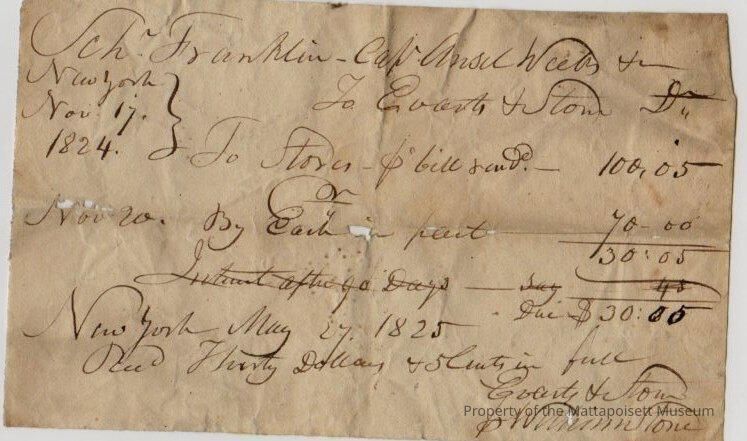 Schr. Franklin - Capt Ansel Weeks &
New York
Nov. 17.
1824.
To Evarts & Stone Dr
To Stores - pr bill rend. — 100.05
Cr
Nov 20. By Cash in part 70-00
30:05
Interest after 90 Days — Say 45
Due $30:05
New York May 27. 1825
Recd Thirty Dollars & 5 Cents in full
Evarts & Stone
Property of the Mattapoisett Museum
pr Stone